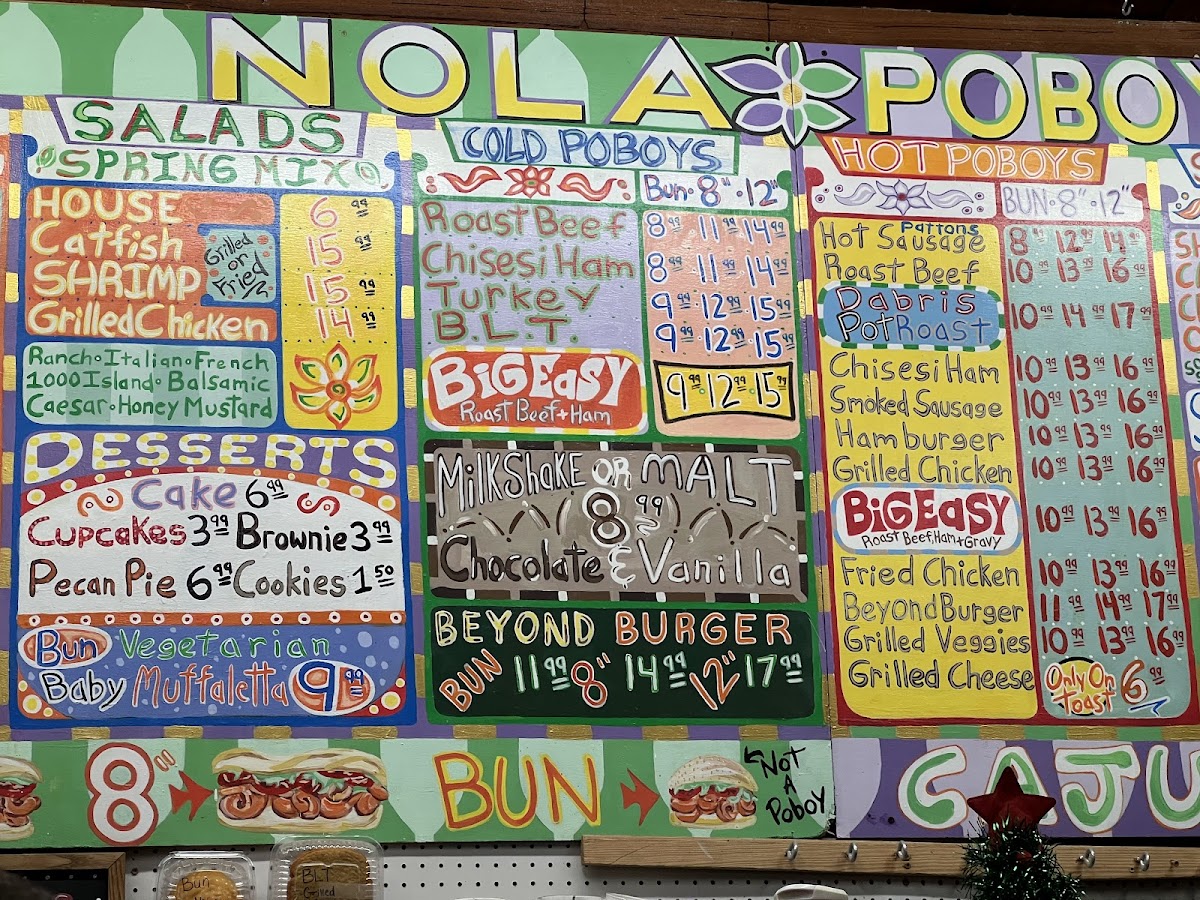 NOLA POBOY
SALADS
SPRING MIX
HOUSE 6.99
Catfish 15.99
SHRIMP 15.99
Grilled or Fried
Grilled Chicken 14.99
Ranch • Italian • French
1000 Island • Balsamic
Caesar • Honey Mustard
DESSERTS
Cake 6.99
Cupcakes 3.99 Brownie 3.99
Pecan Pie 6.99 Cookies 1.50
Bun Vegetarian
Baby Muffaletta 9.99
COLD POBOYS
Bun • 8" • 12"
Roast Beef 8.99 11.99 14.99
Chisesi Ham 8.99 11.99 14.99
Turkey 9.99 12.99 15.99
B.L.T. 9.99 12.99 15.99
BIG EASY 9.99 12.99 15.99
Roast Beef + Ham
MILKSHAKE OR MALT
8.99
Chocolate & Vanilla
BEYOND BURGER
BUN 11.99 8" 14.99 12" 17.99
HOT POBOYS
BUN • 8" • 12"
Pattons
Hot Sausage 8.99 12.99 14.99
Roast Beef 10.99 13.99 16.99
Dabris
Pot Roast 10.99 14.99 17.99
Chisesi Ham 10.99 13.99 16.99
Smoked Sausage 10.99 13.99 16.99
Hamburger 10.99 13.99 16.99
Grilled Chicken 10.99 13.99 16.99
BIG EASY 10.99 13.99 16.99
Roast Beef, Ham + Gravy
Fried Chicken 10.99 13.99 16.99
Beyond Burger 11.99 14.99 17.99
Grilled Veggies 10.99 13.99 16.99
Grilled Cheese Only On Toast 6.99
8" BUN
Not
A
Poboy
CAJU
Bun
BLT
Grilled